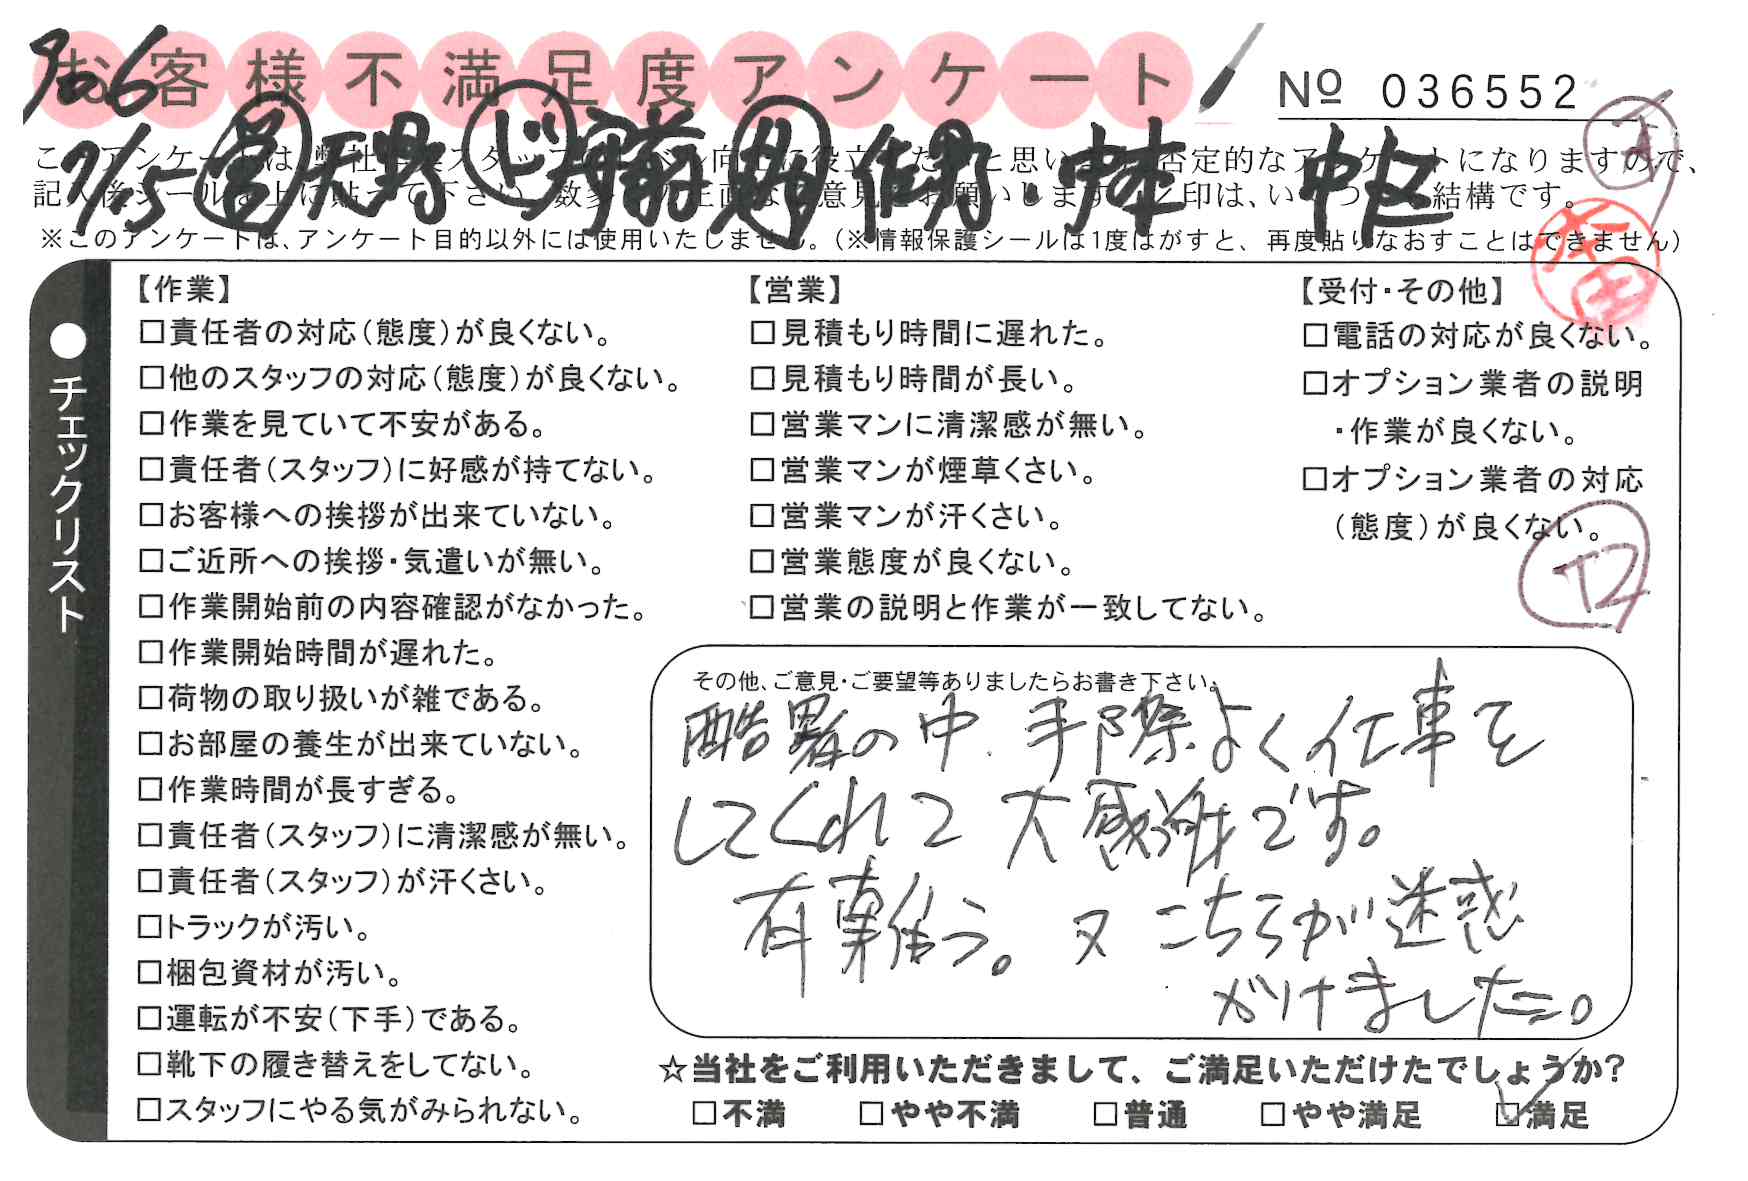 お客様不満足度アンケート
№ 036552
706
7/15 営 天野 ド 助 佐野 中本
※このアンケートは、アンケート目的以外には使用いたしません。(※情報保護シールは1度はがすと、再度貼りなおすことはできません)
本田
●チェックリスト
【作業】
□責任者の対応(態度)が良くない。
□他のスタッフの対応(態度)が良くない。
□作業を見ていて不安がある。
□責任者(スタッフ)に好感が持てない。
□お客様への挨拶が出来ていない。
□ご近所への挨拶・気遣いが無い。
□作業開始前の内容確認がなかった。
□作業開始時間が遅れた。
□荷物の取り扱いが雑である。
□お部屋の養生が出来ていない。
□作業時間が長すぎる。
□責任者(スタッフ)に清潔感が無い。
□責任者(スタッフ)が汗くさい。
□トラックが汚い。
□梱包資材が汚い。
□運転が不安(下手)である。
□靴下の履き替えをしてない。
□スタッフにやる気がみられない。
【営業】
□見積もり時間に遅れた。
□見積もり時間が長い。
□営業マンに清潔感が無い。
□営業マンが煙草くさい。
□営業マンが汗くさい。
□営業態度が良くない。
□営業の説明と作業が一致してない。
【受付・その他】
□電話の対応が良くない。
□オプション業者の説明
・作業が良くない。
□オプション業者の対応
(態度)が良くない。
その他、ご意見・ご要望等ありましたらお書き下さい。
酷暑の中、手際よく仕事を
してくれて大感謝です。
有難う。又こちらが迷惑
かけました。
☆当社をご利用いただきまして、ご満足いただけたでしょうか?
□不満 □やや不満 □普通 □やや満足 □満足